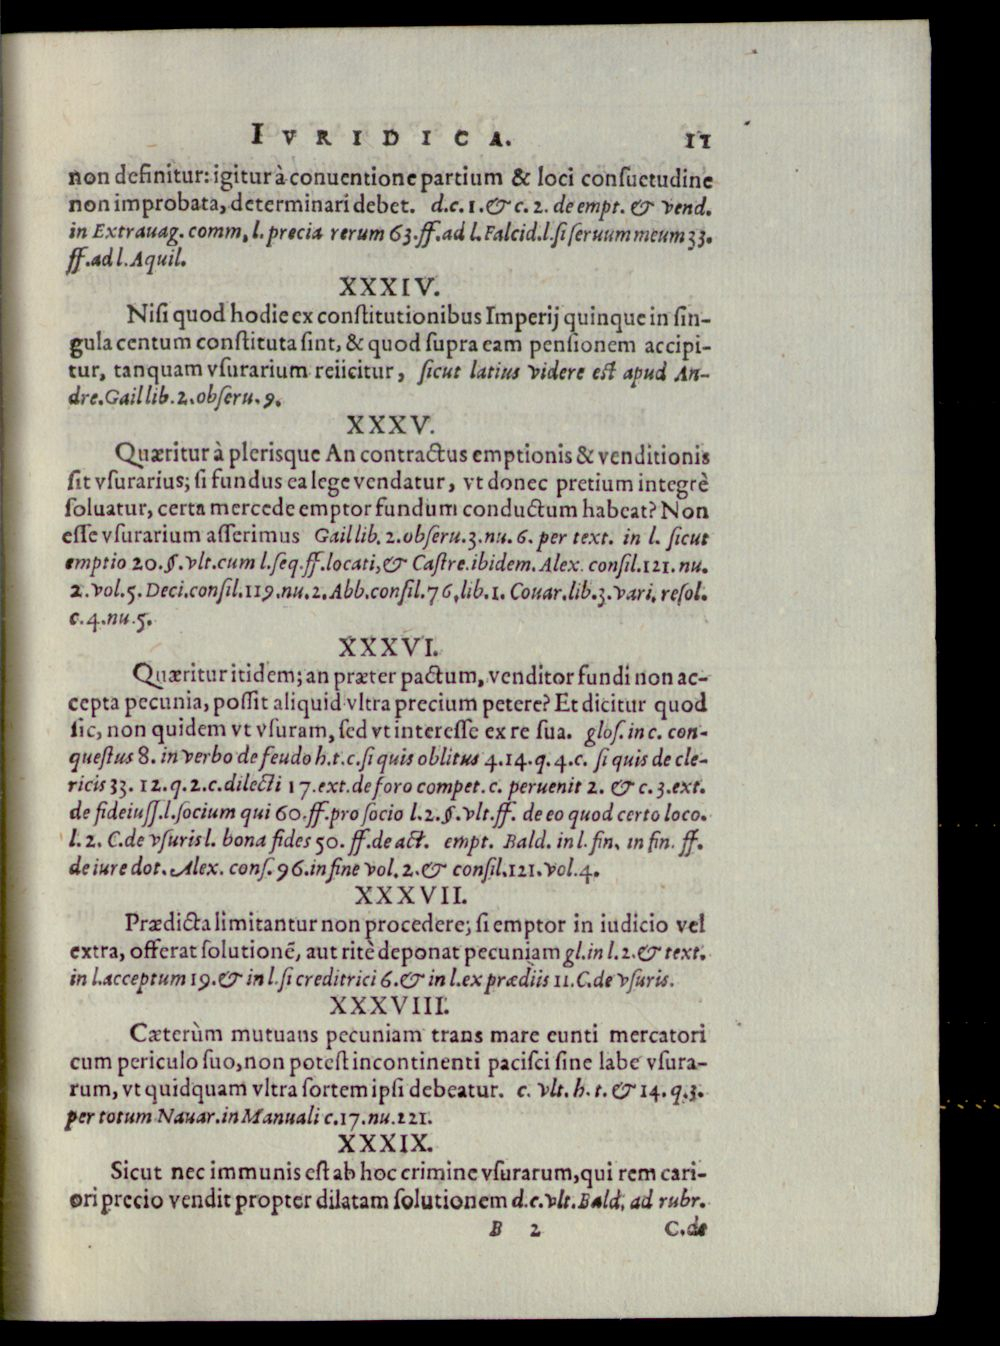 IVRIDICA. 11
non definitur: igitur à conuentione partium & loci consuetudine
non improbata, determinari debet. d.c.1.& c.2. de empt. & vend.
in Extrauag. comm, l. precia rerum 63.ff.ad l.Falcid.l.si seruum meum 33.
ff.ad l.Aquil.
XXXIV.
Nisi quod hodie ex constitutionibus Imperij quinque in sin-
gula centum constituta sint, & quod supra eam pensionem accipi-
tur, tanquam vsurarium reiicitur, sicut latius videre est apud An-
dre.Gail lib.2.obseru.9.
XXXV.
Quæritur à plerisque An contractus emptionis & venditionis
sit vsurarius; si fundus ea lege vendatur, vt donec pretium integrè
soluatur, certa mercede emptor fundum conductum habeat? Non
esse vsurarium asserimus Gail lib. 2.obseru.3.nu.6. per text. in l. sicut
emptio 20.§.vlt.cum l.seq.ff.locati,& Castre.ibidem. Alex. consil.121. nu.
2.vol.5. Deci.consil.119.nu.2. Abb.consil.76,lib.1. Couar.lib.3.vari. resol.
c.4.nu.5.
XXXVI.
Quæritur itidem; an præter pactum, venditor fundi non ac-
cepta pecunia, possit aliquid vltra precium petere? Et dicitur quod
sic, non quidem vt vsuram, sed vt interesse ex re sua. glos. in c. con-
questus 8. in verbo de feudo h.t.c.si quis oblitus 4.14.q.4.c. si quis de cle-
ricis 33. 12.q.2.c.dilecti 17.ext.de foro compet.c. peruenit 2. & c.3.ext.
de fideiuss.l.socium qui 60.ff.pro socio l.2.§.vlt.ff. de eo quod certo loco.
l.2. C.de vsuris l. bona fides 50. ff.de act. empt. Bald. in l.fin. in fin. ff.
de iure dot. Alex. cons.96.in fine vol.2.& consil.121.vol.4.
XXXVII.
Prædicta limitantur non procedere; si emptor in iudicio vel
extra, offerat solutionẽ, aut ritè deponat pecuniam gl.in l.2.& text.
in l.acceptum 19.& in l.si creditrici 6.& in l.ex prædiis 11.C.de vsuris.
XXXVIII.
Cæterùm mutuans pecuniam trans mare eunti mercatori
cum periculo suo, non potest incontinenti pacisci sine labe vsura-
rum, vt quidquam vltra sortem ipsi debeatur. c. vlt. h. t. & 14. q.3.
per totum Nauar.in Manuali c.17.nu.221.
XXXIX.
Sicut nec immunis est ab hoc crimine vsurarum, qui rem cari-
ori precio vendit propter dilatam solutionem d.c.vlt.Bald. ad rubr.
B 2 C.de